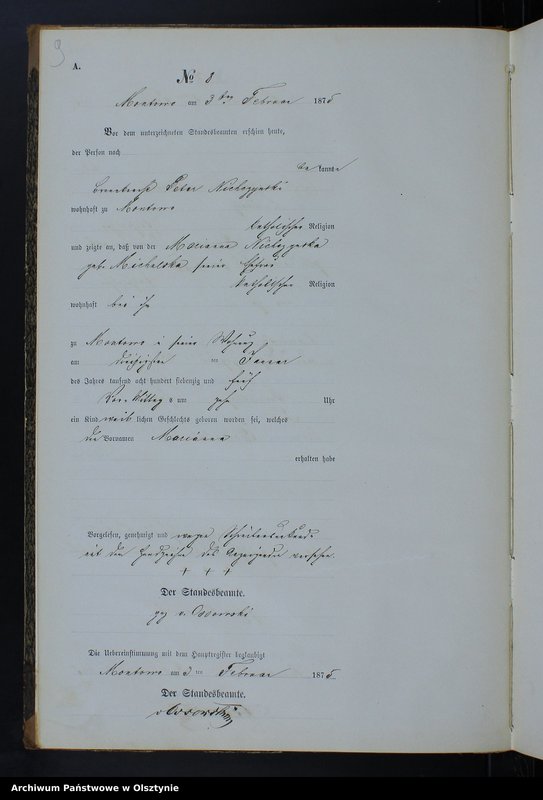 9
A.
No 8
Montowo am 3ten Februar 1875
Vor dem unterzeichneten Standesbeamten erschien heute,
der Person nach
be kannt
Peter
wohnhaft zu Montowo
katholischer Religion
und zeigte an, daß von der Marianna
geb. Michalska seiner Ehefrau
katholischer Religion
wohnhaft bei ihm
zu Montowo in seiner Wohnung
am dreißigsten ten Januar
des Jahres tausend acht hundert siebenzig und fünf
Vormittags um Uhr
ein Kind weib lichen Geschlechts geboren worden sei, welches
die Vornamen Marianna
erhalten habe
Vorgelesen, genehmigt und wegen
mit dem Handzeichen des Anzeigenden versehen.
+ + +
Der Standesbeamte.
gez v. Ossowski
Die Uebereinstimmung mit dem Hauptregister beglaubigt
Montowo am 3 ten Februar 1875
Der Standesbeamte.
v Ossowski
Archiwum Państwowe w Olsztynie